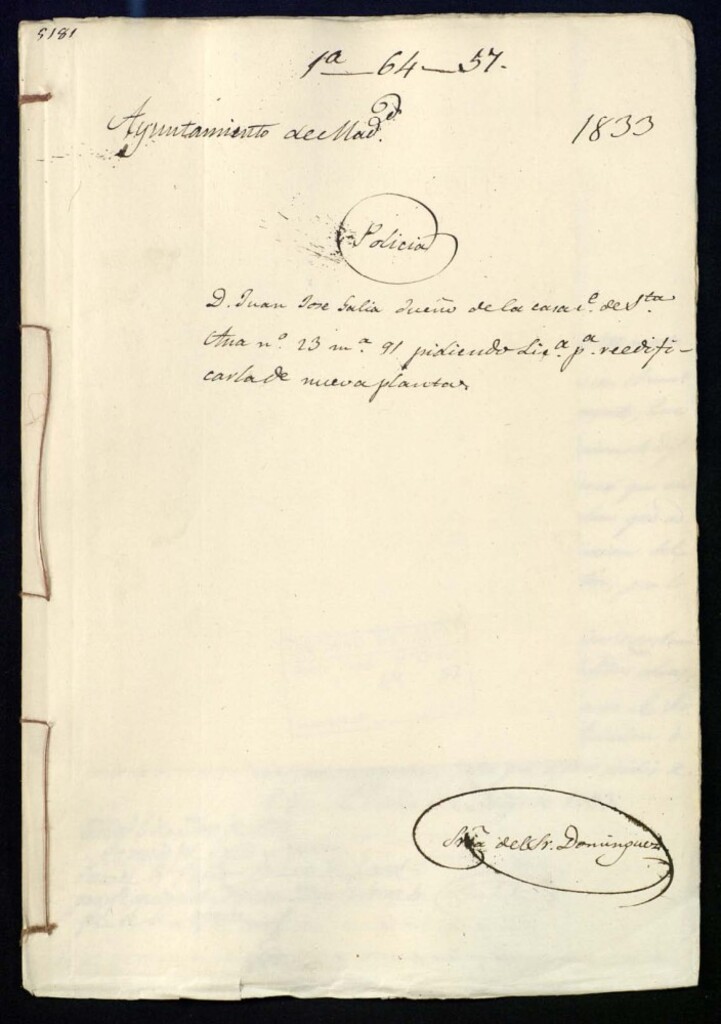 5181
1ª — 64 — 57.
Ayuntamiento de Mad.d
1833
Policia
D. Juan Jose Galia dueño de la casa c.e de S.ta
Ana n.º 23 m.ª 91 pidiendo Lic.ª p.ª reedifi-
carla de nueva planta
Sr.ia del Sr. Dominguez